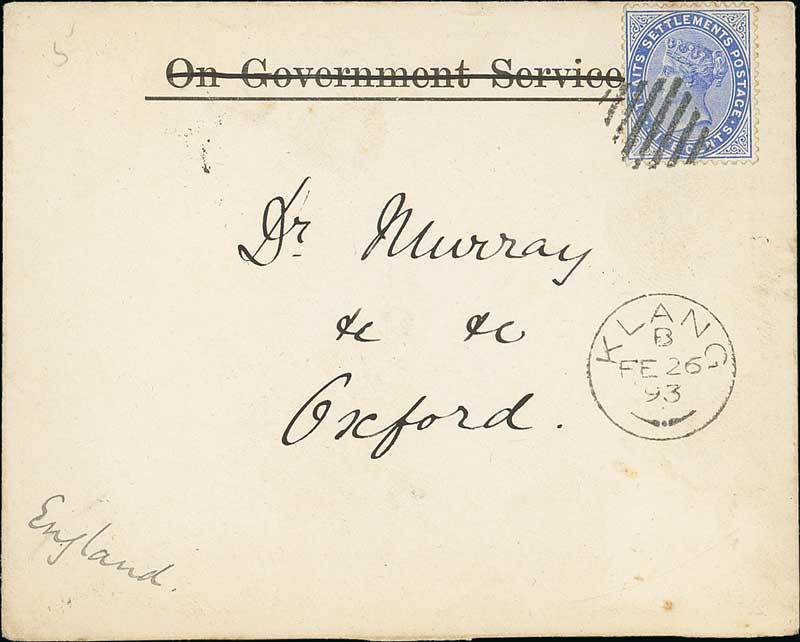 5
On Government Service
STRAITS SETTLEMENTS POSTAGE
CENTS
Dr Murray
&c &c
Oxford.
KLANG
B
FE 26
93
England.